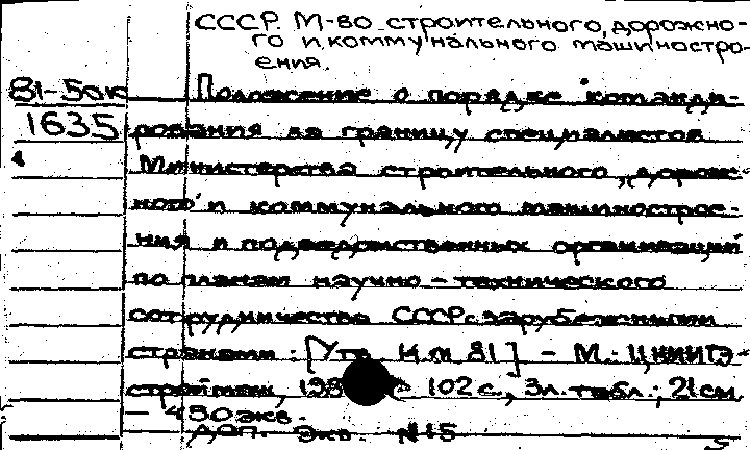 СССР. М-во строительного, дорожно-
го и коммунального машиностро-
ения.
81-5 Положение о порядке команди-
1635 рования за границу специалистов
Министерства строительного, дорож-
ного и коммунального машинострое-
ния и подведомственных организаций
по планам научно-технического
сотрудничества СССР с зарубежными
странами: [Утв. 81] - М.: ЦНИИТЭ-
строймаш, 198 102 с., 3 л. табл.; 21 см
- 450 экз.
Доп. экз. №15